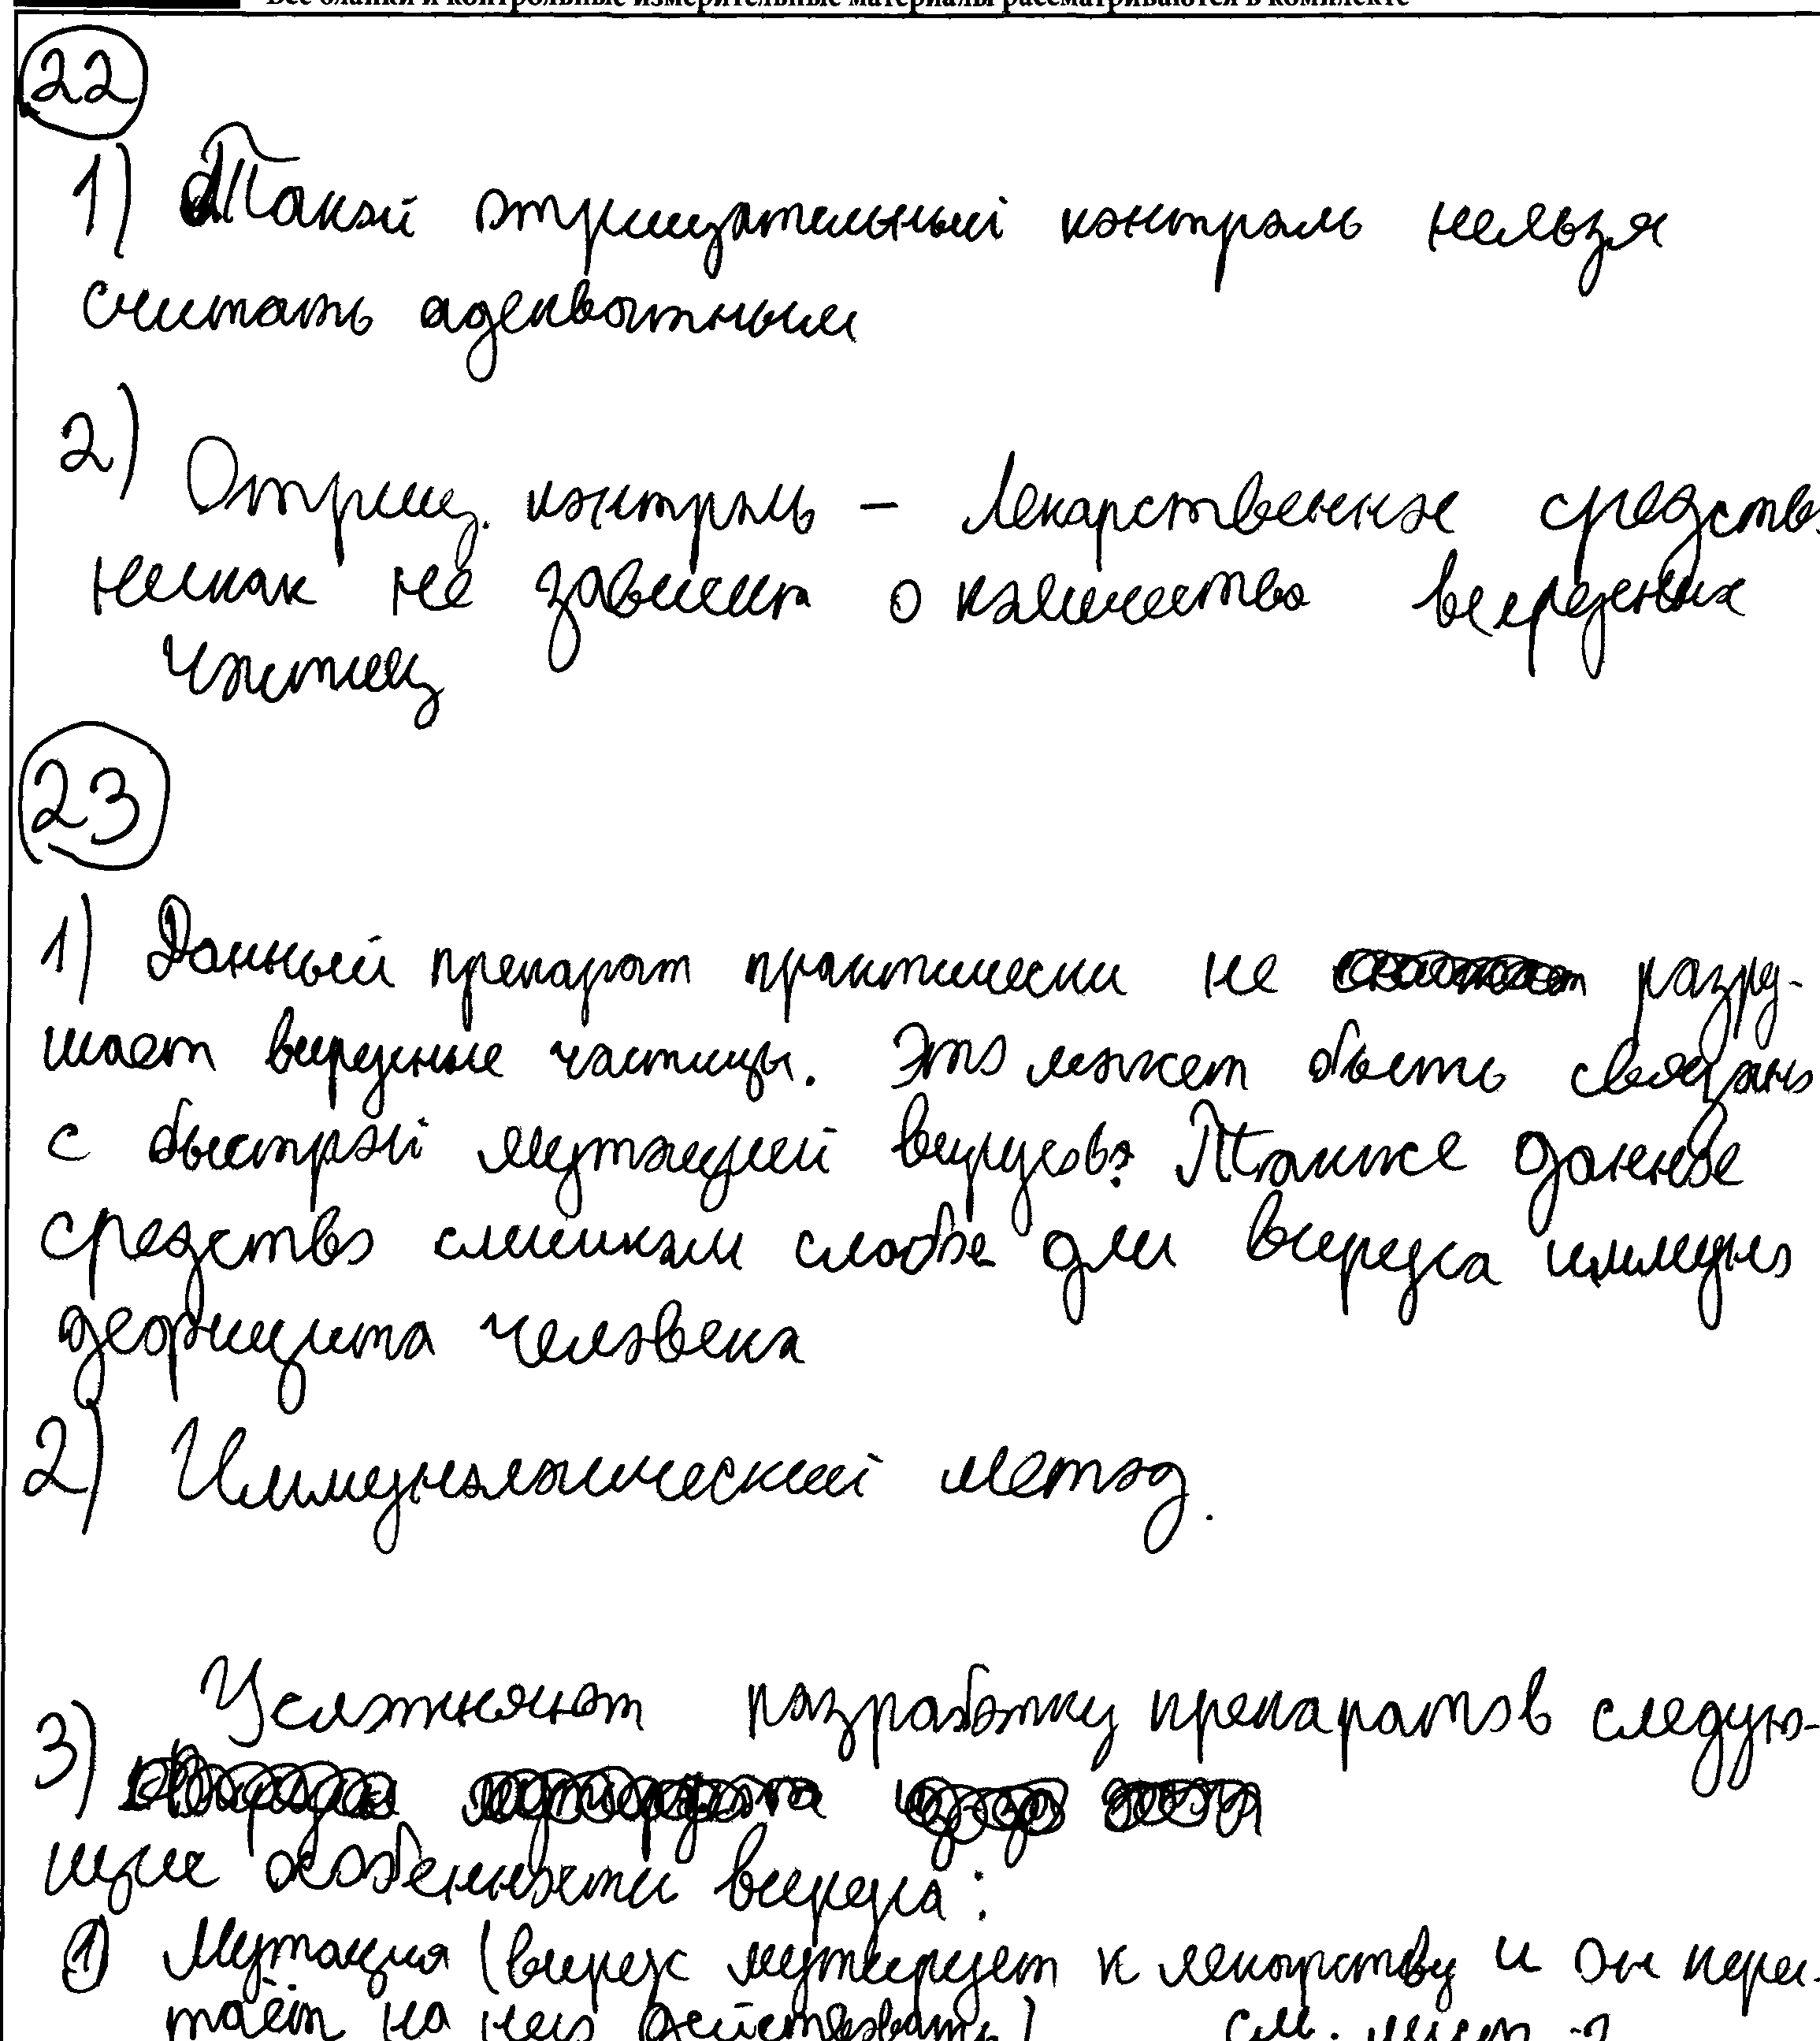 Все бланки и контрольные измерительные материалы рассматриваются в комплекте
22
1) Такой отрицательный контроль нельзя
считать адекватным
2) Отриц. контроль – Лекарственное средство
никак не зависит о количества вирусных
частиц
23
1) Данный препарат практически не разру-
шает вирусные частицы. Это может быть связано
с быстрой мутацией вирусов. Также данное
средство слишком слабое для вируса иммуно
дефицита человека
2) Иммунологический метод.
3) Усложняют разработку препаратов следую-
щие особенности вируса:
1) Мутация (вирус мутирует к лекарству и он перес-
таёт на него действовать) см. лист 2